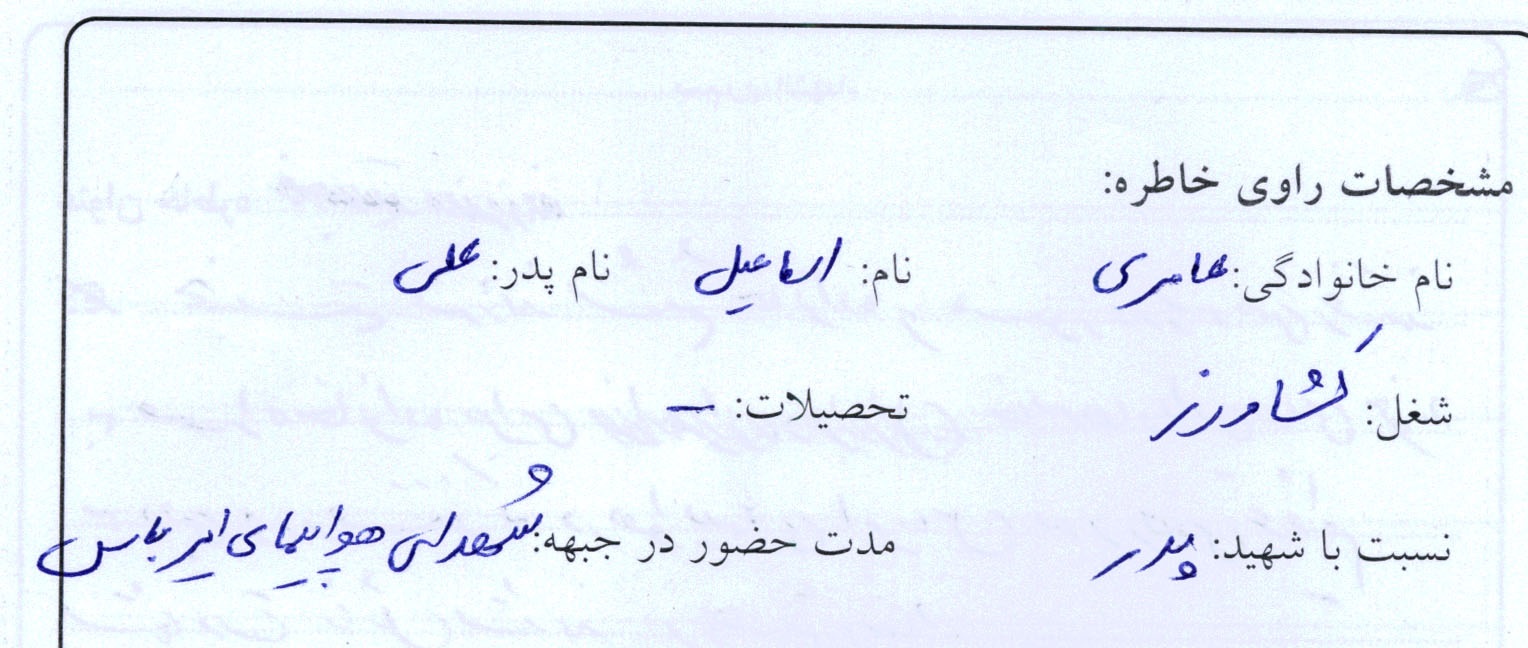 مشخصات راوی خاطره:
نام خانوادگی: عامری نام: اسماعیل نام پدر: علی
شغل: کشاورز تحصیلات: —
نسبت با شهید: پدر مدت حضور در جبهه: شهدای هواپیمای ایرباس